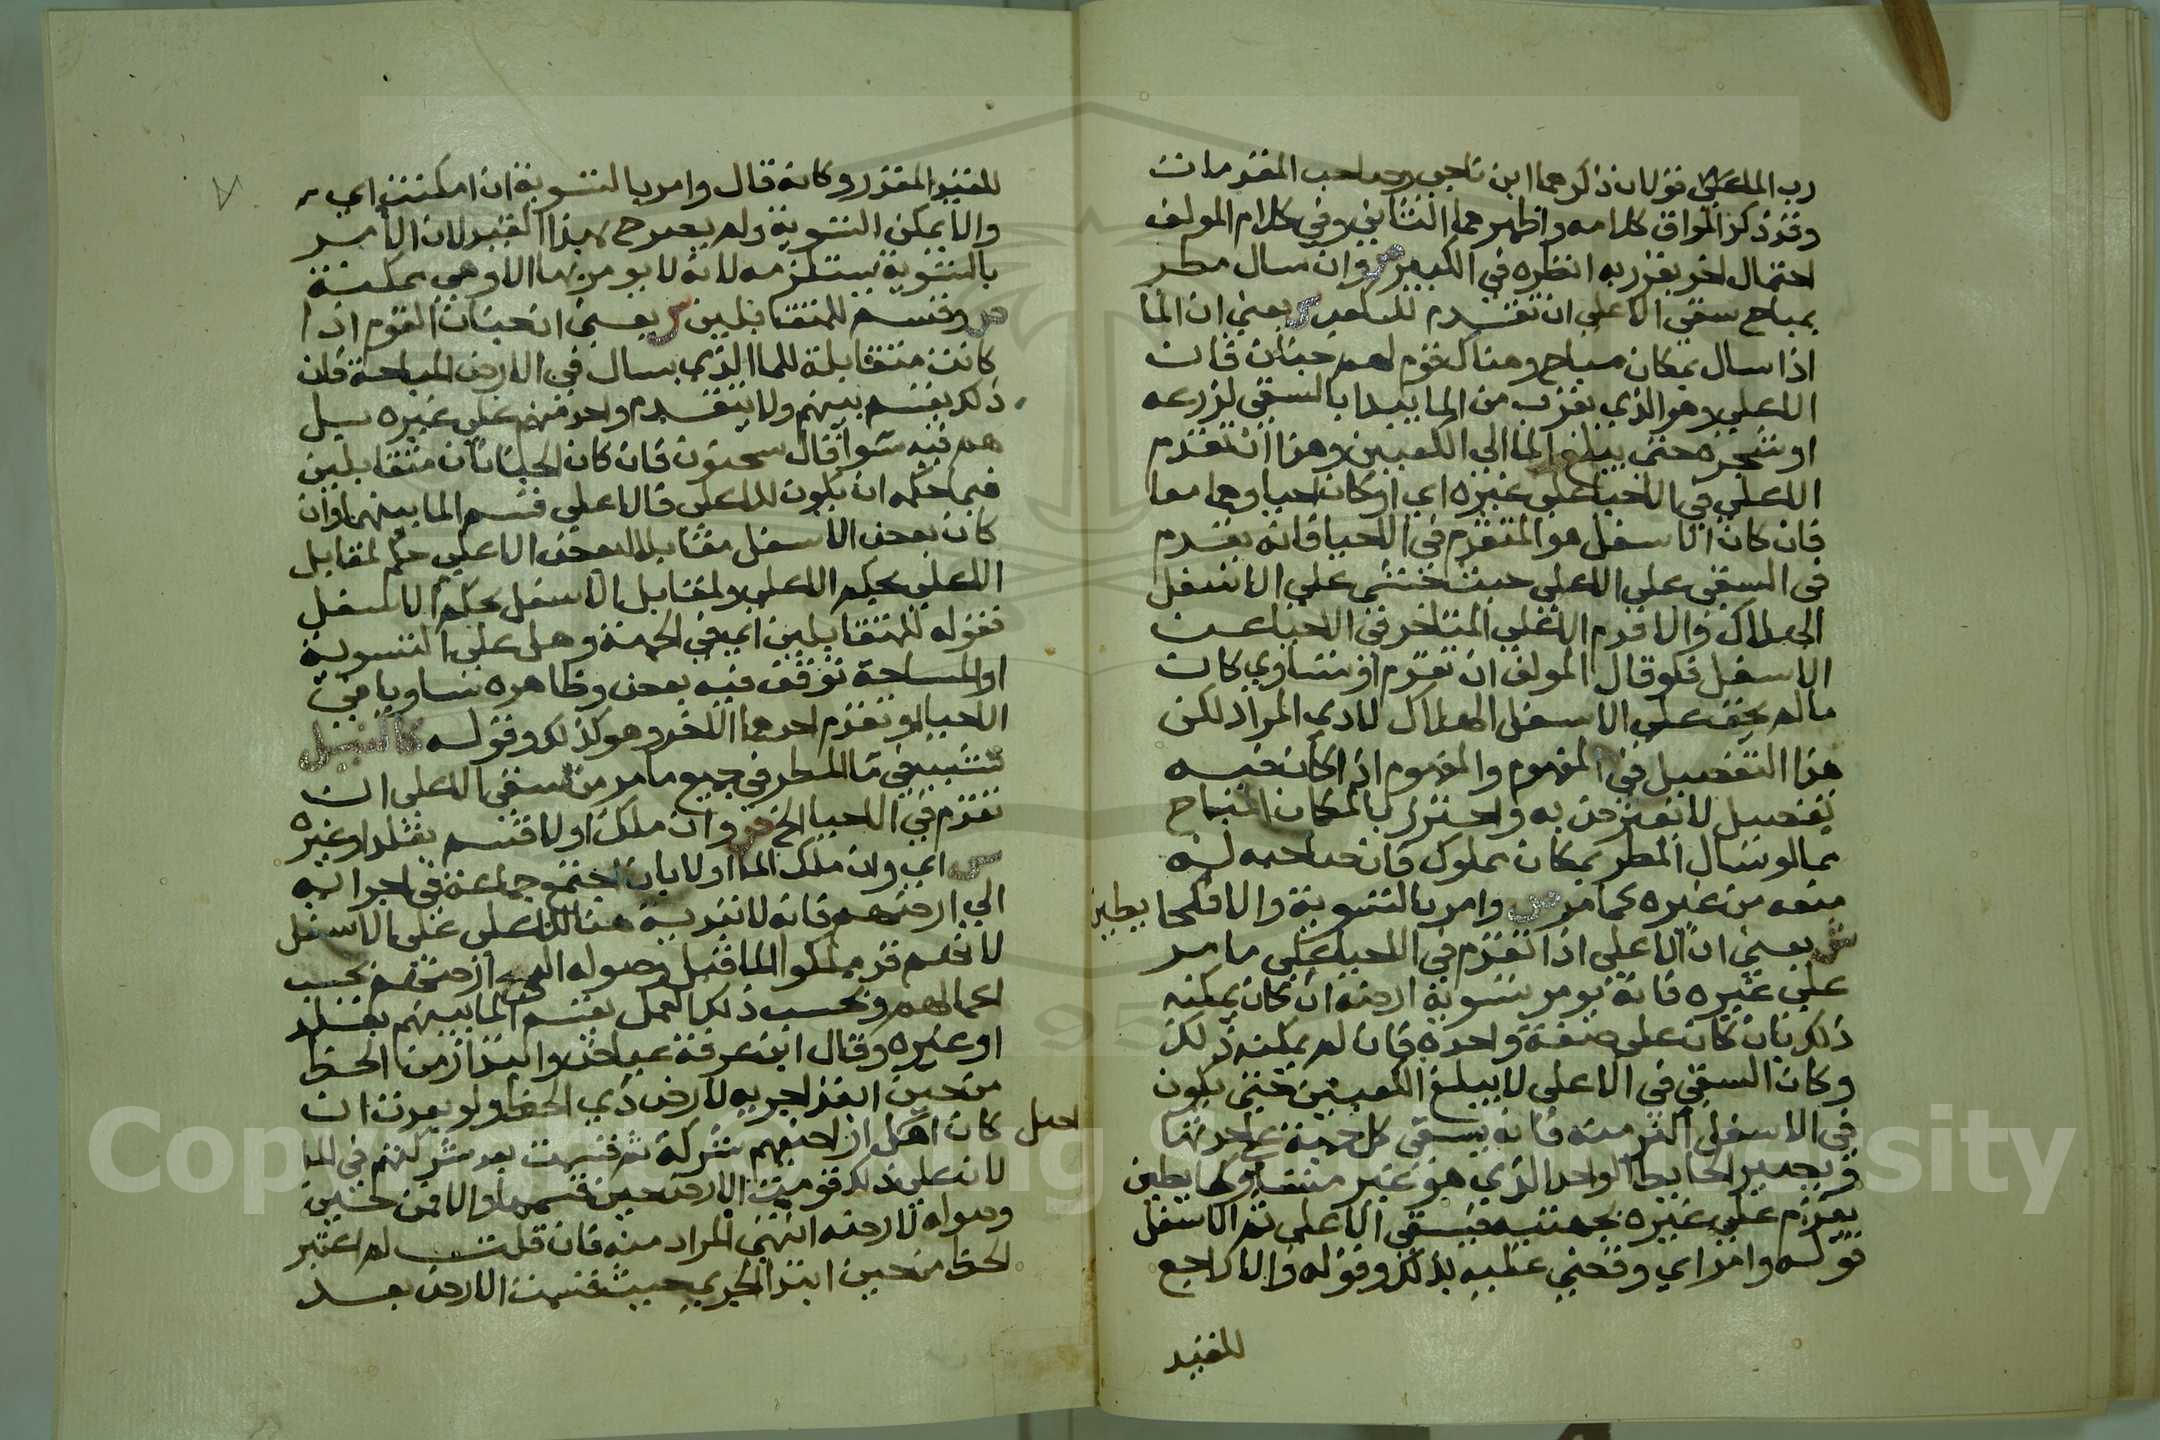 رب الملعلى قولان ذكرهما ابن ناجي وصاحب المقدمات
وقد ذكر المواق كلامه واظهرهما الثاني وفي كلام المولف
احتمال اخر يقرر به انظره في الكبير ص وان سال مطر
بمباح سقي الاعلى ان تقدم للكعب ش يعني ان الما
اذا سال بمكان مباح وهناك قوم لهم جنان فان
الاعلى وهو الذي يقرب من الما يبدا بالسقي لزرعه
او شجره حتى يبلغ الما الي الكعبين وهذا ان تقدم
الاعلى في الاحيا على غيره اي او كان احياوهما معا
فان كان الاسفل هو المتقدم في الاحيا فانه يقدم
في السقي على الاعلى حيث خشي علي الاسفل
الهلاك والا قدم الاعلي المتاخر في الاحيا عن
الاسفل فلو قال المولف ان تقدم او تساوي كان
ما لم يخف علي الاسفل الهلاك لادي المراد لكن
هذا التفصيل في المفهوم والمفهوم اذا كان فيه
تفصيل لا يعترض به واحترز بالمكان المباح
عما لو سال المطر بمكان مملوك فان صاحبه له
منعه من غيره كما مر ص وامر بالتسوية والا فكحايطين
ش يعني ان الاعلي اذا تقدم في الاحيا على ما مر
علي غيره فانه يومر بتسوية ارضه ان كان يمكنه
ذلك بان كان على صفة واحدة فان لم يمكنه ذلك
وكان السقي في الاعلى لا يبلغ الكعبين حتي يكون
في الاسفل اكثر منه فانه يسقي كل جهة على حدتها
ويصير الحايط الواحد الذي هو غير مستو كحايطين
يقدم علي غيره بجهتيه فيسقي الاعلى ثم الاسفل
قوله وامر اي وقضي عليه بذلك وقوله والا راجع
للقيد
للقيد المقدر وكانه قال وامر بالتسوية ان امكنت اي
والا يمكن التسوية ولم يصرح بهذا القيد لان الامر
بالتسوية يستلزمه لانه لا يومر بها الا وهي ممكنة
ص وقسم للمتقابلين ش يعني ان جنان القوم اذا
كانت متقابلة للما الذي سال في الارض المباحة فان
ذلك يقسم بينهم ولا يتقدم واحد منهم على غيره بل
هم فيه سوا قال سحنون فان كان الجنانان متقابلين
فيما حكمه ان يكون للاعلى فالاعلي قسم الما بينهما وان
كان بعض الاسفل مقابلا لبعض الاعلي حكم لمقابل
الاعلى بحكم الاعلي ولمقابل الاسفل بحكم الاسفل
فقوله للمتقابلين اي في الجهة وهل على التسوية
او المساحة توقف فيه بعض وظاهره تساويا في
الاحيا او تقدم احدهما الاخر وهو كذلك وقوله كالنيل
تشبيه في ما المطر في جميع ما مر من سقي الاعلى ان
تقدم في الاحيا الخ ص وان ملك اولا قسم بقلد او غيره
ش اي وان ملك الما اولا بان اجتمع جماعة في اجرايه
الي ارضهم فانه لا تبدية هنا للاعلى على الاسفل
لانهم قد ملكوا الما قبل وصوله الي ارضهم بحسب
اعمالهم وبحسب ذلك العمل يقسم الما بينهم بقلد
او غيره وقال ابن عرفة عياض وابتدا زمن الحظ
من حين ابتدا جريه لارض ذي الحظ ولو بعدت ان
كان اهل اصل احيايهم شركة ثم قسمت بعد شركتهم في الما
لان على ذلك قومت الارض حين قسمها والا فمن حين
وصوله لارضه انتهي المراد منه فان قلت لم اعتبر
الحظ من حين ابتدا الجري حيث قسمت الارض بعد